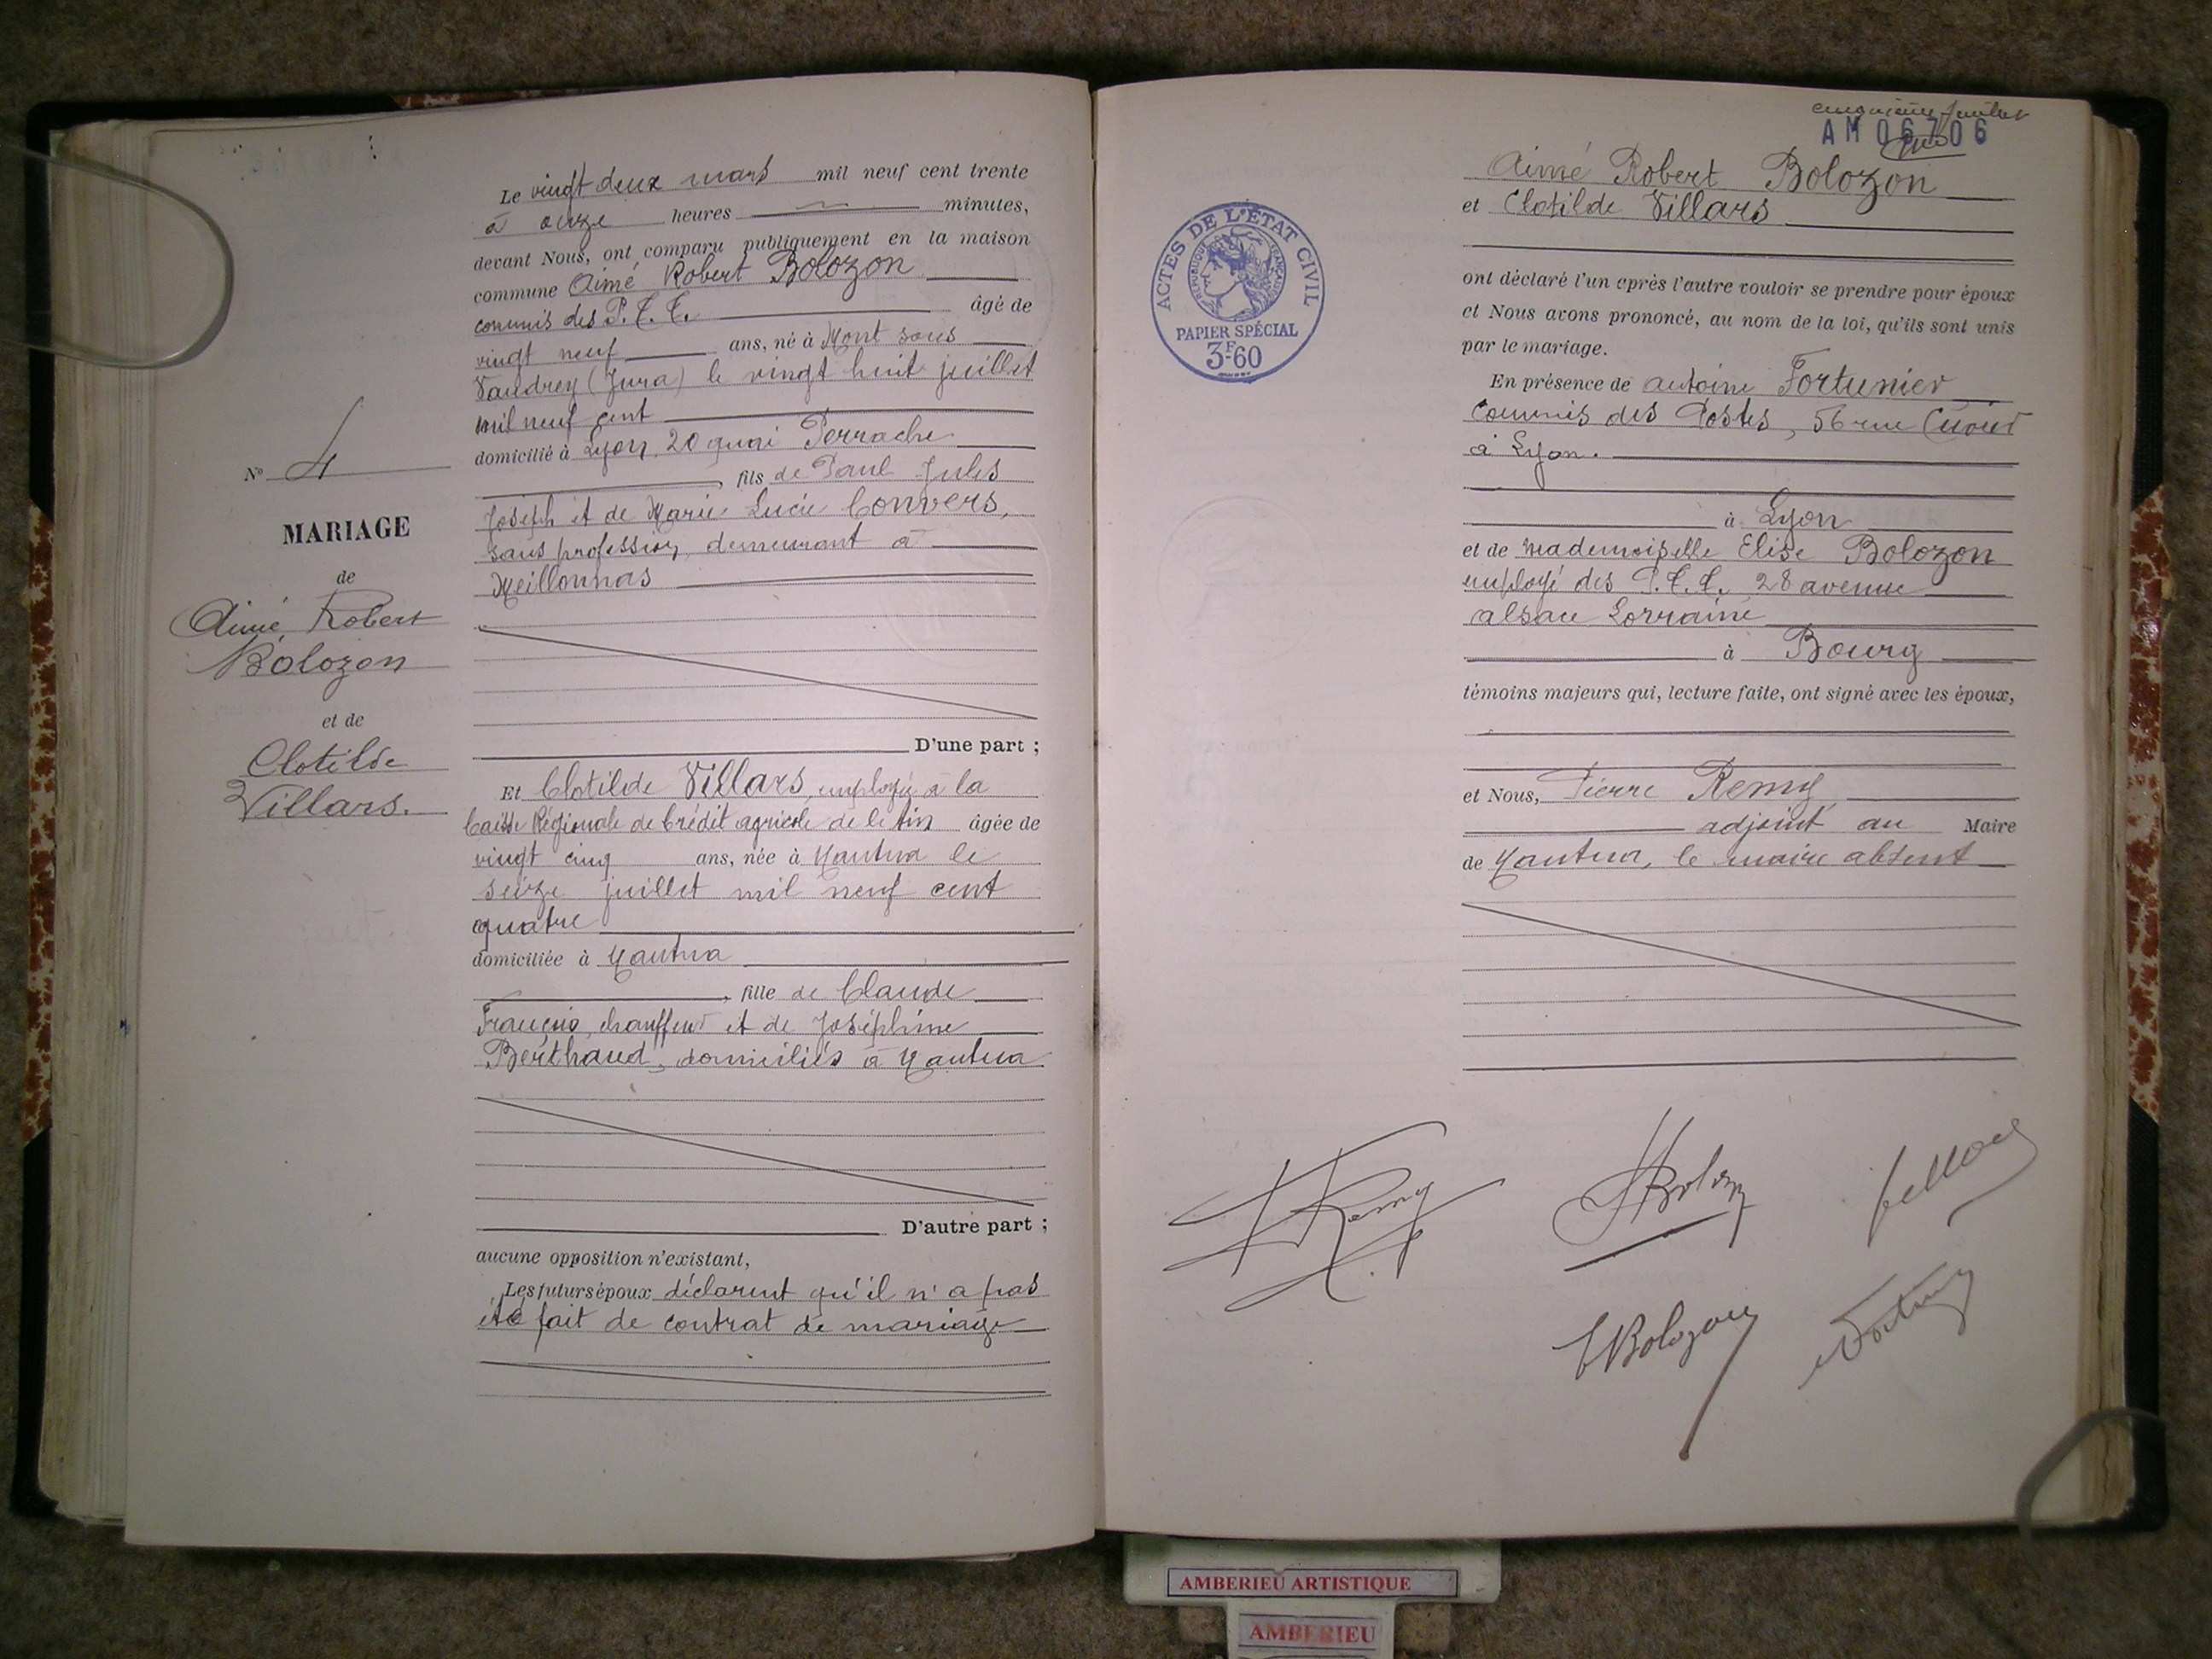 Le vingt deux mars mil neuf cent trente
à onze heures minutes,
devant Nous, ont comparu publiquement en la maison
commune Aimé Robert Bolozon
commis des P.T.T. âgé de
vingt neuf ans, né à Mont sous
Vaudrey (Jura) le vingt huit juillet
mil neuf cent
domicilié à Lyon, 20 quai Perrache
, fils de Paul Jules
Joseph et de Marie Lucie Convers,
sans profession, demeurant à
Meillonnas
N° 4
MARIAGE
de
Aimé Robert
Bolozon
et de
Clotilde
Villars.
D'une part ;
Et Clotilde Villars, employée à la
Caisse Régionale de Crédit agricole de l'Ain âgée de
vingt cinq ans, née à Nantua le
seize juillet mil neuf cent
quatre
domiciliée à Nantua
, fille de Claude
François, chauffeur et de Joséphine
Berthaud, domiciliés à Nantua
D'autre part ;
aucune opposition n'existant,
Les futurs époux déclarent qu'il n'a pas
été fait de contrat de mariage
cinquième feuillet
AM 06706
Aimé Robert Bolozon
et Clotilde Villars
ACTES DE L'ÉTAT CIVIL
RÉPUBLIQUE FRANÇAISE
PAPIER SPÉCIAL
3F60
ont déclaré l'un après l'autre vouloir se prendre pour époux
et Nous avons prononcé, au nom de la loi, qu'ils sont unis
par le mariage.
En présence de Antoine Fortunier
commis des Postes, 56 rue Cuvier
à Lyon.
à Lyon
et de Mademoiselle Elise Bolozon
employé des P.T.T. 28 avenue
Alsace Lorraine
à Bourg
témoins majeurs qui, lecture faite, ont signé avec les époux,
et Nous, Pierre Remy
adjoint au Maire
de Nantua, le maire absent
Remy
Bolozon
EBolozon
AMBERIEU ARTISTIQUE
AMBERIEU